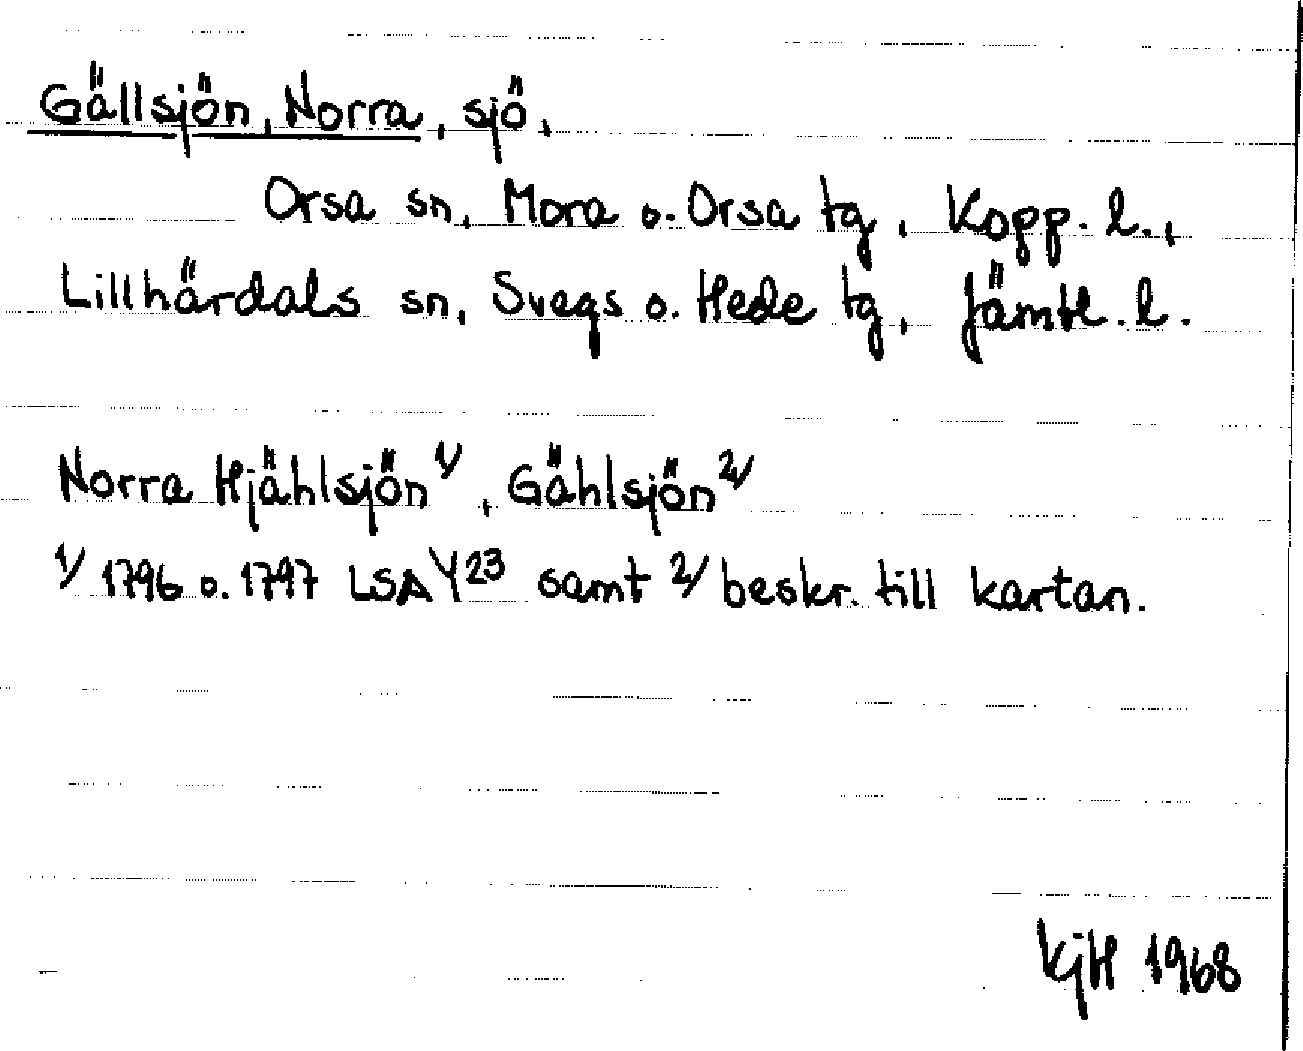 Gällsjön, Norra, sjö,
Orsa sn, Mora o. Orsa tg, Kopp. l.,
Lillhärdals sn, Svegs o. Hede tg, Jämtl. l.
Norra Hjählsjön 1/, Gählsjön 2/
1/ 1796 o. 1797 LSA Y23 samt 2/ beskr. till kartan.
KjH 1968